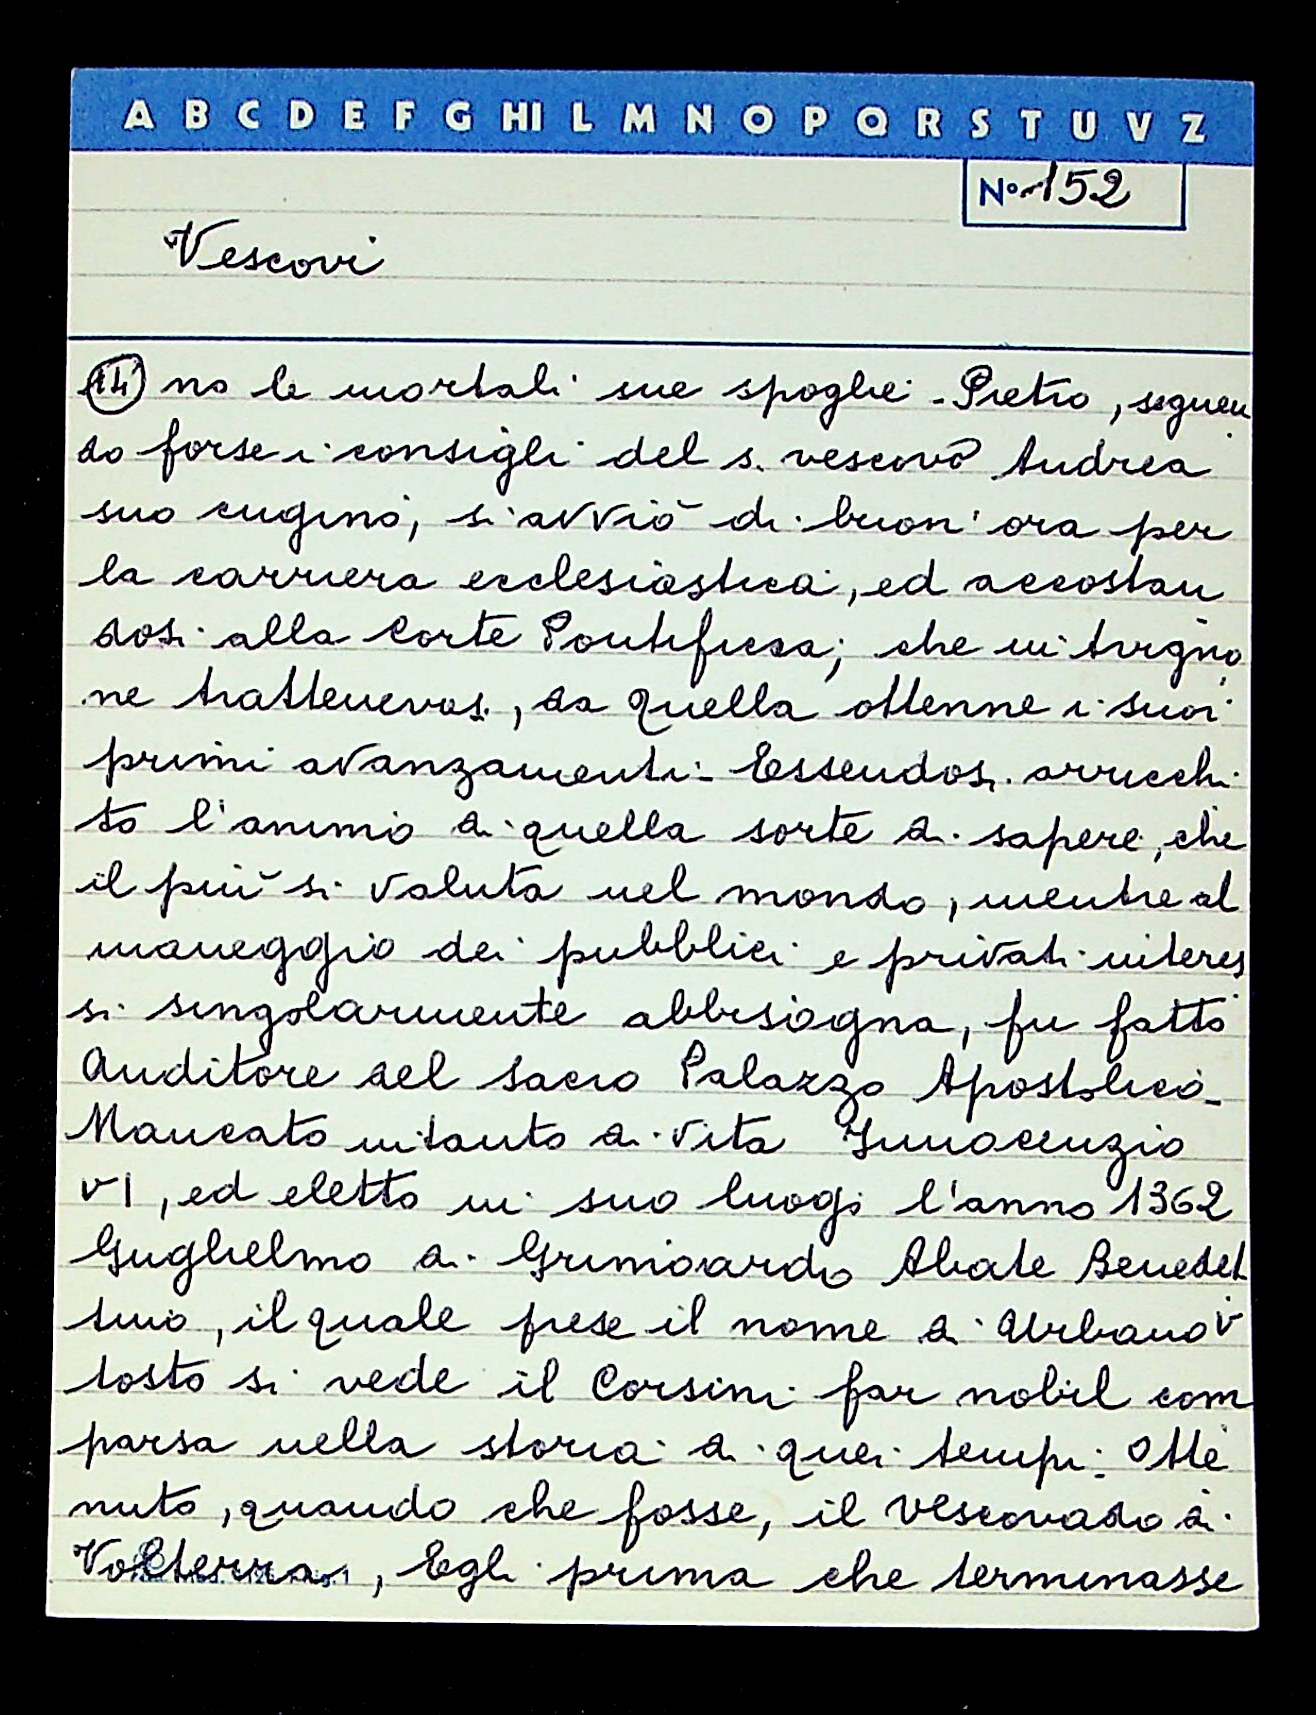 A B C D E F G HI L M N O P Q R S T U V Z
N° 152
Vescovi
(14) no le mortali sue spoglie - Pietro, seguen
do forse i consigli del s. vescovo Andrea
suo cugino, si avviò di buon'ora per
la carriera ecclesiastica, ed accostan
dosi alla Corte Pontificia, che in Avigno
ne trattenevasi, da quella ottenne i suoi
primi avanzamenti - Essendosi arricchi
to l'animo di quella sorte di sapere, che
il più si valuta nel mondo, mentre al
maneggio dei pubblici e privati interes
si singolarmente abbisogna, fu fatto
Auditore del Sacro Palazzo Apostolico -
Mancato intanto di vita Innocenzio
VI, ed eletto in suo luogo l'anno 1362
Guglielmo di Grimoardo Abate Benedet
tino, il quale prese il nome di Urbano V
tosto si vede il Corsini far nobil com
parsa nella storia di quei tempi - Otte
nuto, quando che fosse, il Vescovado di
Volterra, Egli prima che terminasse